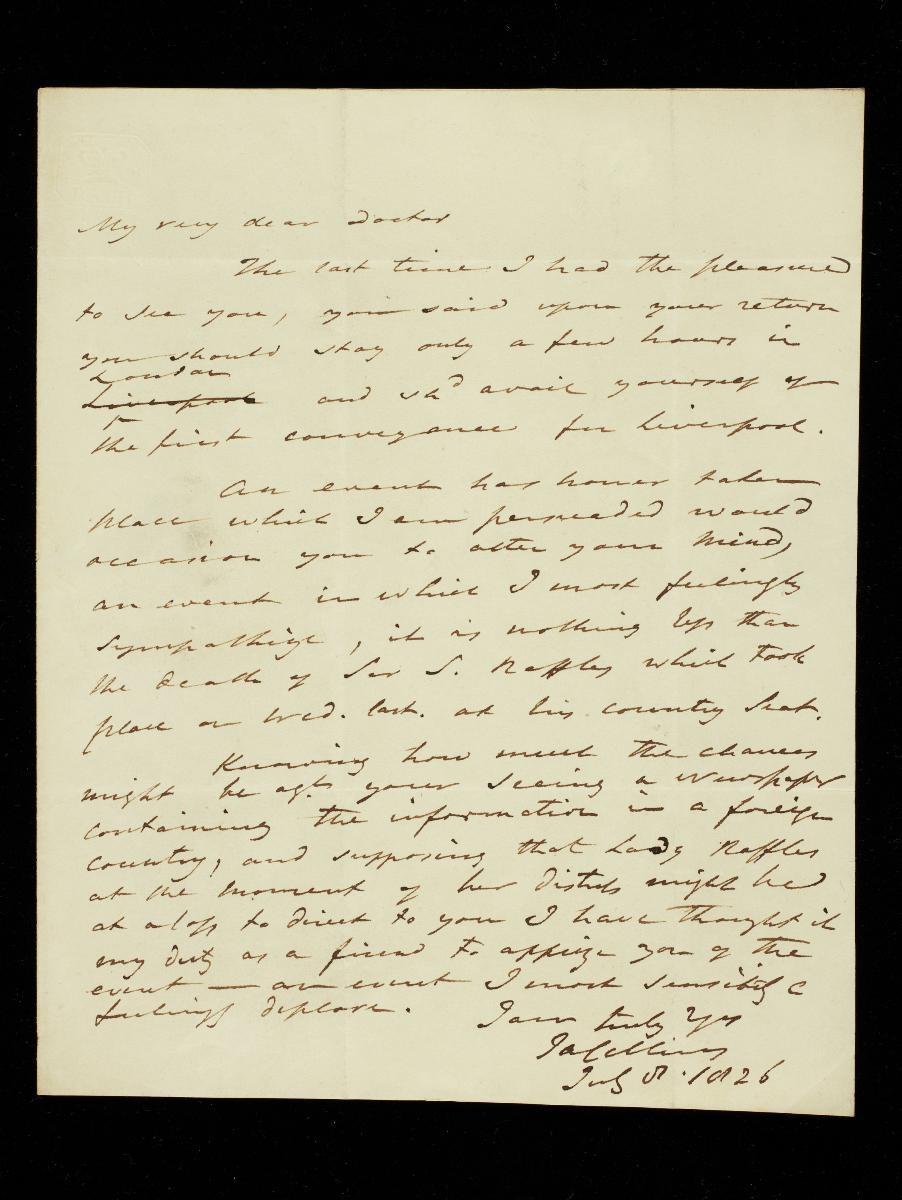 My very dear Doctor
The last time I had the pleasure
to see you, you said upon your return
you should stay only a few hours in
London
Liverpool and shd avail yourself of
the first conveyance for Liverpool.
An event has however taken
place which I am persuaded would
occasion you to alter your mind,
an event in which I most feelingly
sympathize, it is nothing less than
the death of Sir S. Raffles which took
place on Wed. last. at his country seat.
Knowing how much the chances
might be agt your seeing a Newspaper
containing the information in a foreign
country, and supposing that Lady Raffles
at the moment of her distress might be
at a loss to direct to you I have thought it
my duty as a friend to apprize you of the
event — an event I most sensibly &
feelingly deplore.
I am truly Yrs
July 8. 1826